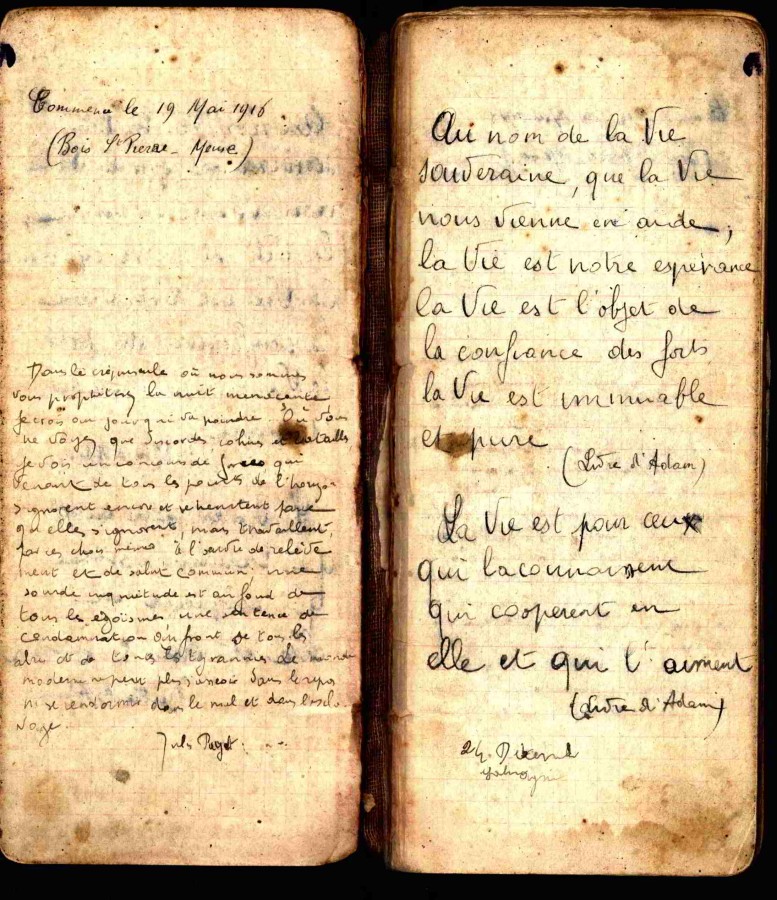 Commencé le 19 Mai 1916
(Bois St Pierre - Meuse)
Dans le crépuscule où nous sommes
vous prophétisez la nuit menaçante
je crois au jour qui va poindre Où vous
ne voyez que discordes cohues et batailles
je vois un concours de forces qui
venant de tous les points de l'horizon
s'ignorent encore et se heurtent parce
qu'elles s'ignorent, mais travaillent,
par ces chocs même à l'œuvre de relève
ment et de salut commun, une
sourde inquiétude est au fond de
tous les égoïsmes, une sentence de
condamnation au front de tous les
abus et de toutes les tyrannies Le monde
moderne ne peut plus s'asseoir dans le repos
ni s'endormir dans le mal et dans l'escla
vage.
Jules Paget.
Au nom de la Vie
souveraine, que la Vie
nous vienne en aide,
la Vie est notre espérance
la Vie est l'objet de
la confiance des forts
la Vie est immuable
et pure
(Livre d'Adam)
La Vie est pour ceux
qui la connaissent
qui coopèrent en
elle et qui l'aiment
(Livre d'Adam)